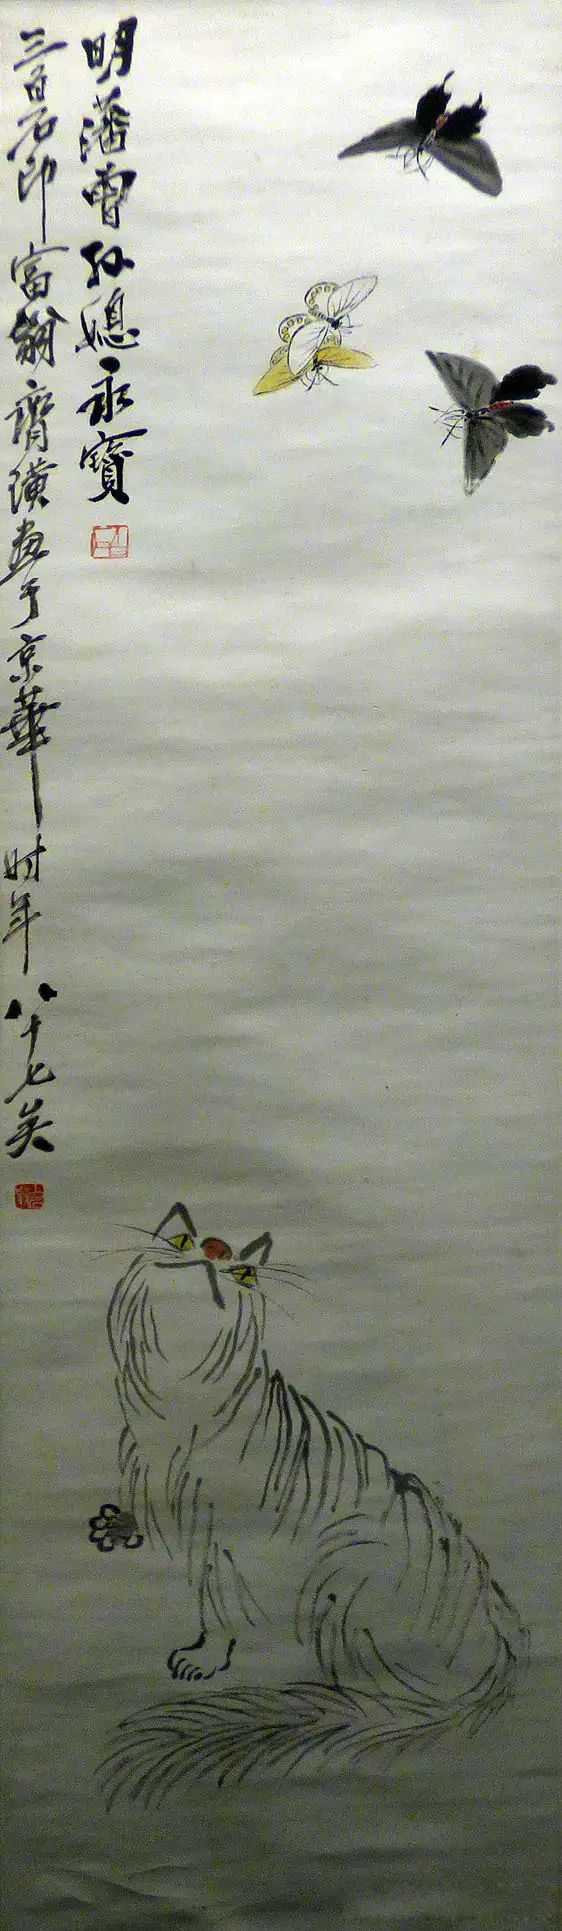 明藩曾孙媳永寶
三百石印富翁齊璜画于京華时年八十七矣